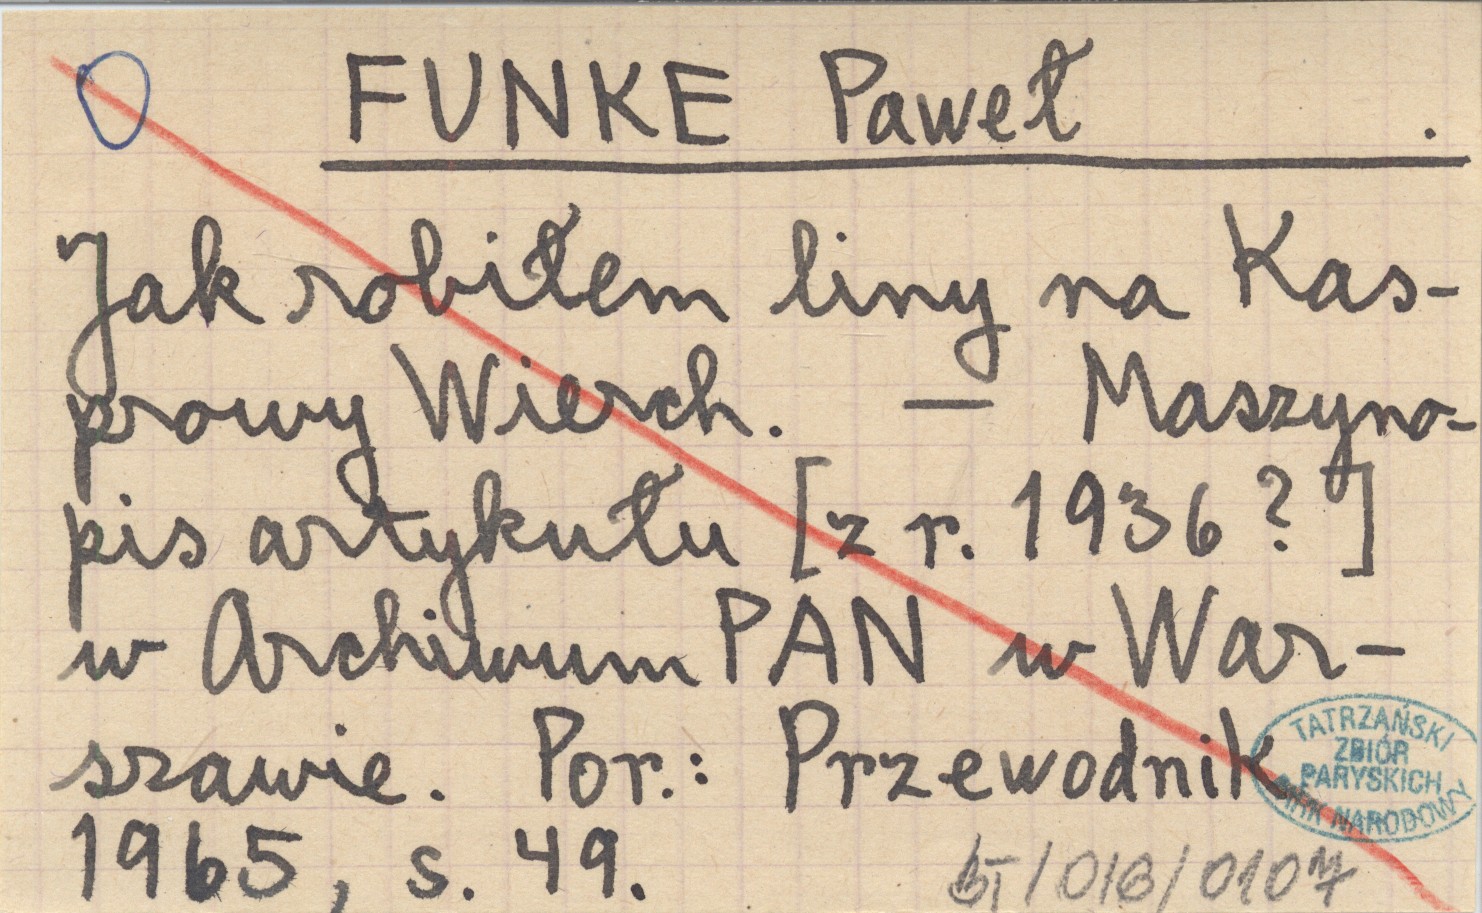 FUNKE Paweł .
Jak robiłem liny na Kas-
prowy Wierch. — Maszyno-
pis artykułu [z r. 1936?]
w Archiwum PAN w War-
szawie. Por.: Przewodnik
1965, s. 49.
TATRZAŃSKI
ZBIÓR
PARYSKICH
PARK NARODOWY
/016/0107